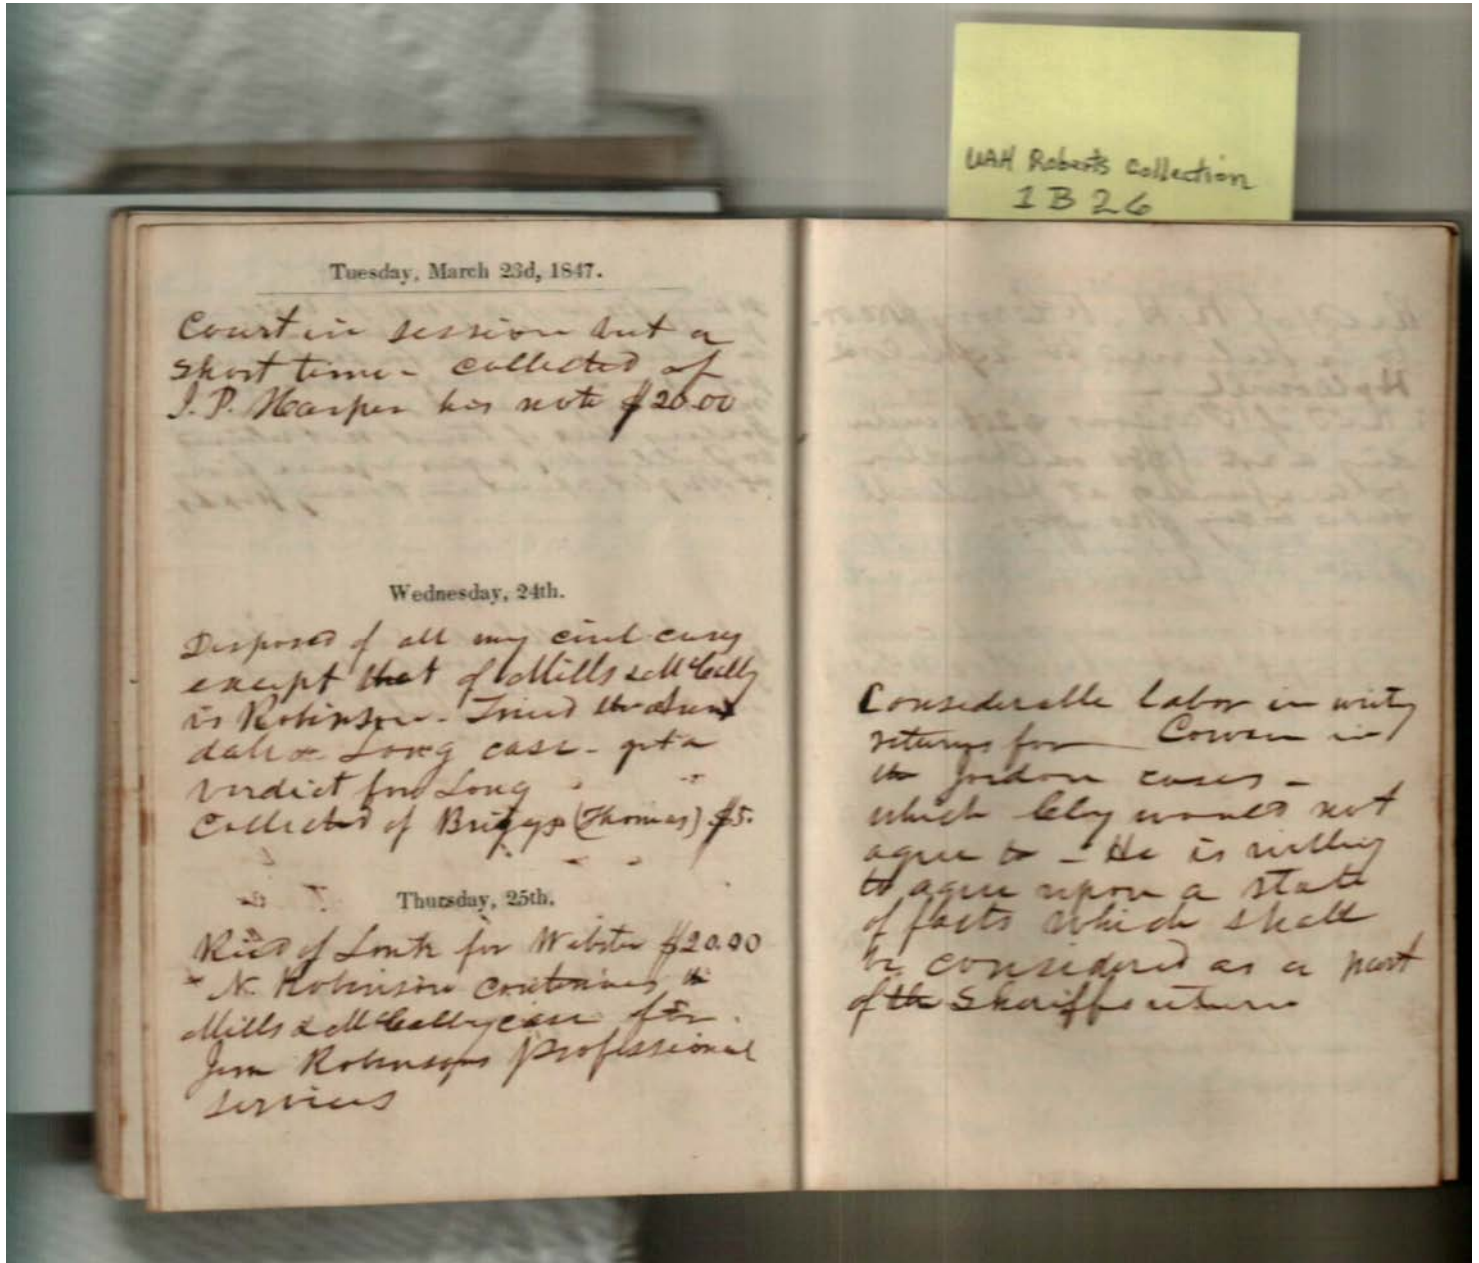 UAH Roberts Collection
1 B 26
Tuesday, March 23d, 1847.
Court in session but a
short time - collected of
J. P. Harper his note $20.00
Wednesday, 24th.
Disposed of all my civil cases
except that of Mills & McCally
vs Robinson - Tried the
Long case - got a
verdict for Long
Collected of Briggs (Thomas) $5.
Thursday, 25th.
Recd of for Webster $20.00
N. Robinson continues the
Mills & McCally case for
Jim Robinsons professional
services
Considerable labor in writing
returns for Cowan in
the Jordon cases -
which Clay would not
agree to - He is willing
to agree upon a state
of facts which shall
be considered as a part
of the Sheriffs return